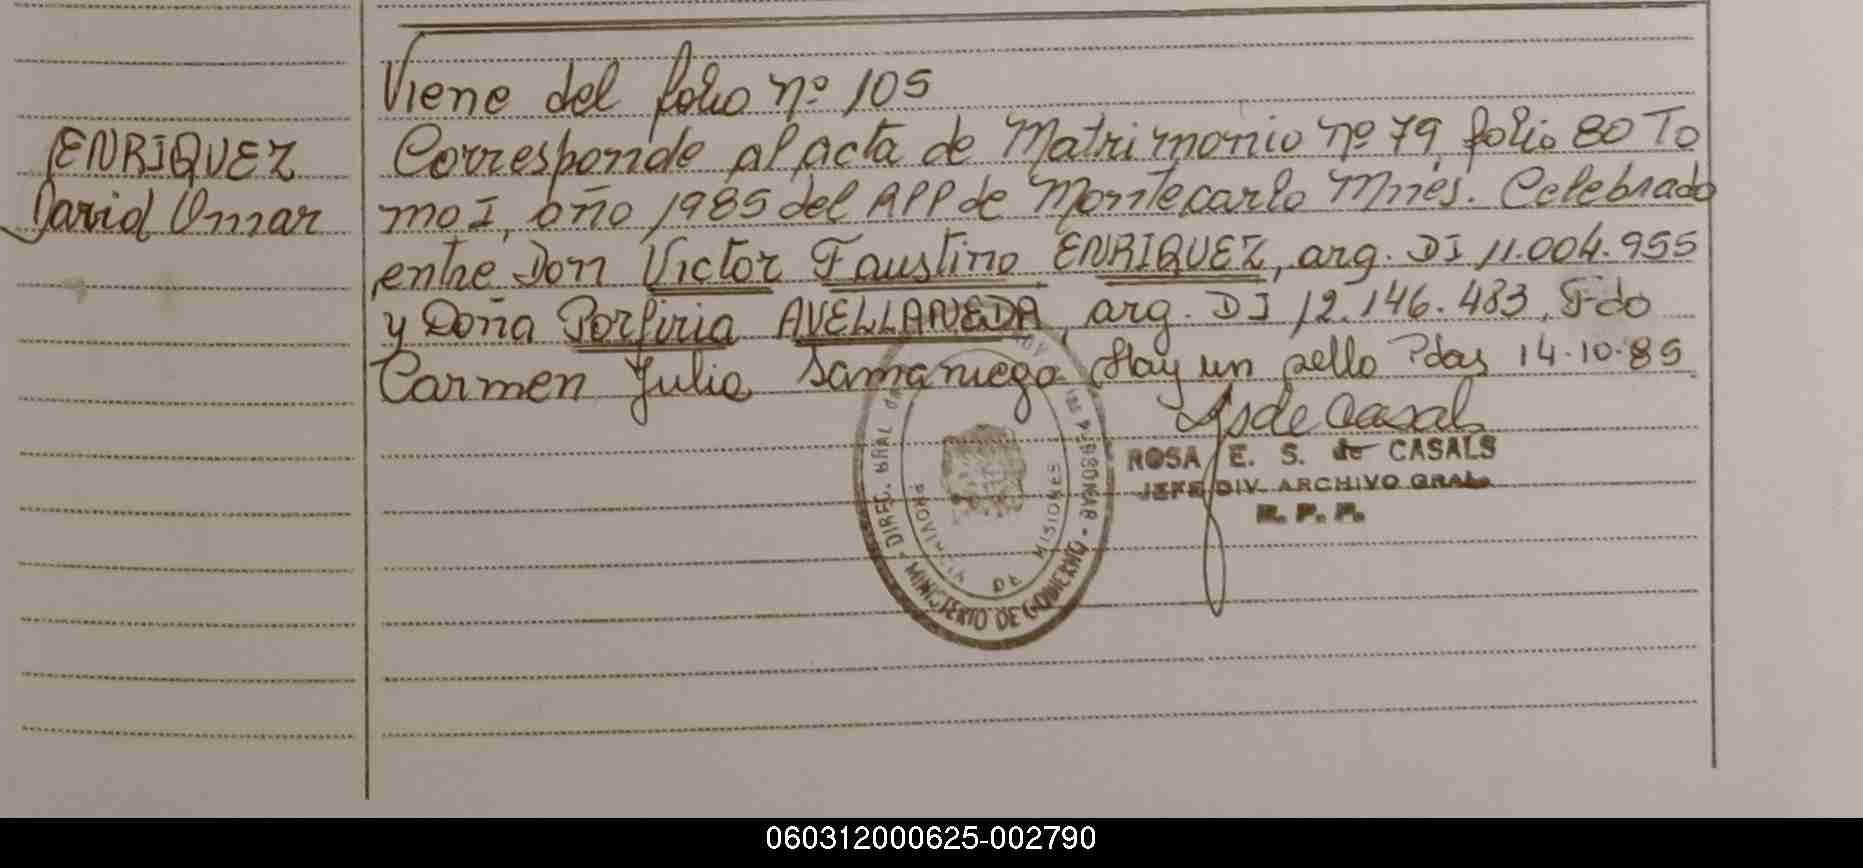 Viene del folio nº 105
ENRIQUEZ
David Omar
Corresponde al acta de Matrimonio nº 79, folio 80 To
mo I, año 1985 del RPP de Montecarlo Mnes. Celebrado
entre Don Victor Faustino ENRIQUEZ, arg. DI 11.004.955
y Doña Porfiria AVELLANEDA, arg. DI 12.146.483. Fdo
Carmen Julia Samaniego Hay un sello Pdas 14.10.85
ROSA E. S. de CASALS
JEFE DIV. ARCHIVO GRAL.
R. P. P.
DIREC. GRAL DE LAS PERSONAS
PROVINCIA DE MISIONES
MINISTERIO DE GOBIERNO
060312000625-002790